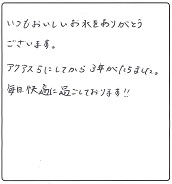 いつもおいしいお水をありがとう
ございます。
アクアス5にしてから3年がたちました。
毎日快適に過ごしております!!